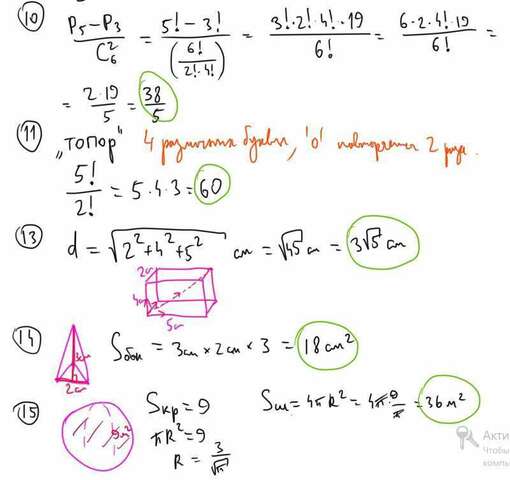 10 (P₅ − P₃)/C₆² = (5! − 3!)/(6!/(2!·4!)) = (3!·2!·4!·19)/6! = (6·2·4!·19)/6! =
= (2·19)/5 = 38/5
11 "ТОПОР" 4 различных буквы, 'о' повторяется 2 раза.
5!/2! = 5·4·3 = 60
13 d = √(2²+4²+5²) см = √45 см = 3√5 см
2см
4см
5см
14 Sбок = 3см × 2см × 3 = 18 см²
3см
2см
15 Sкр = 9 Sш = 4πR² = 4π·9/π = 36 м²
9м²
πR² = 9
R = 3/√π
Акти
Чтобы
компь